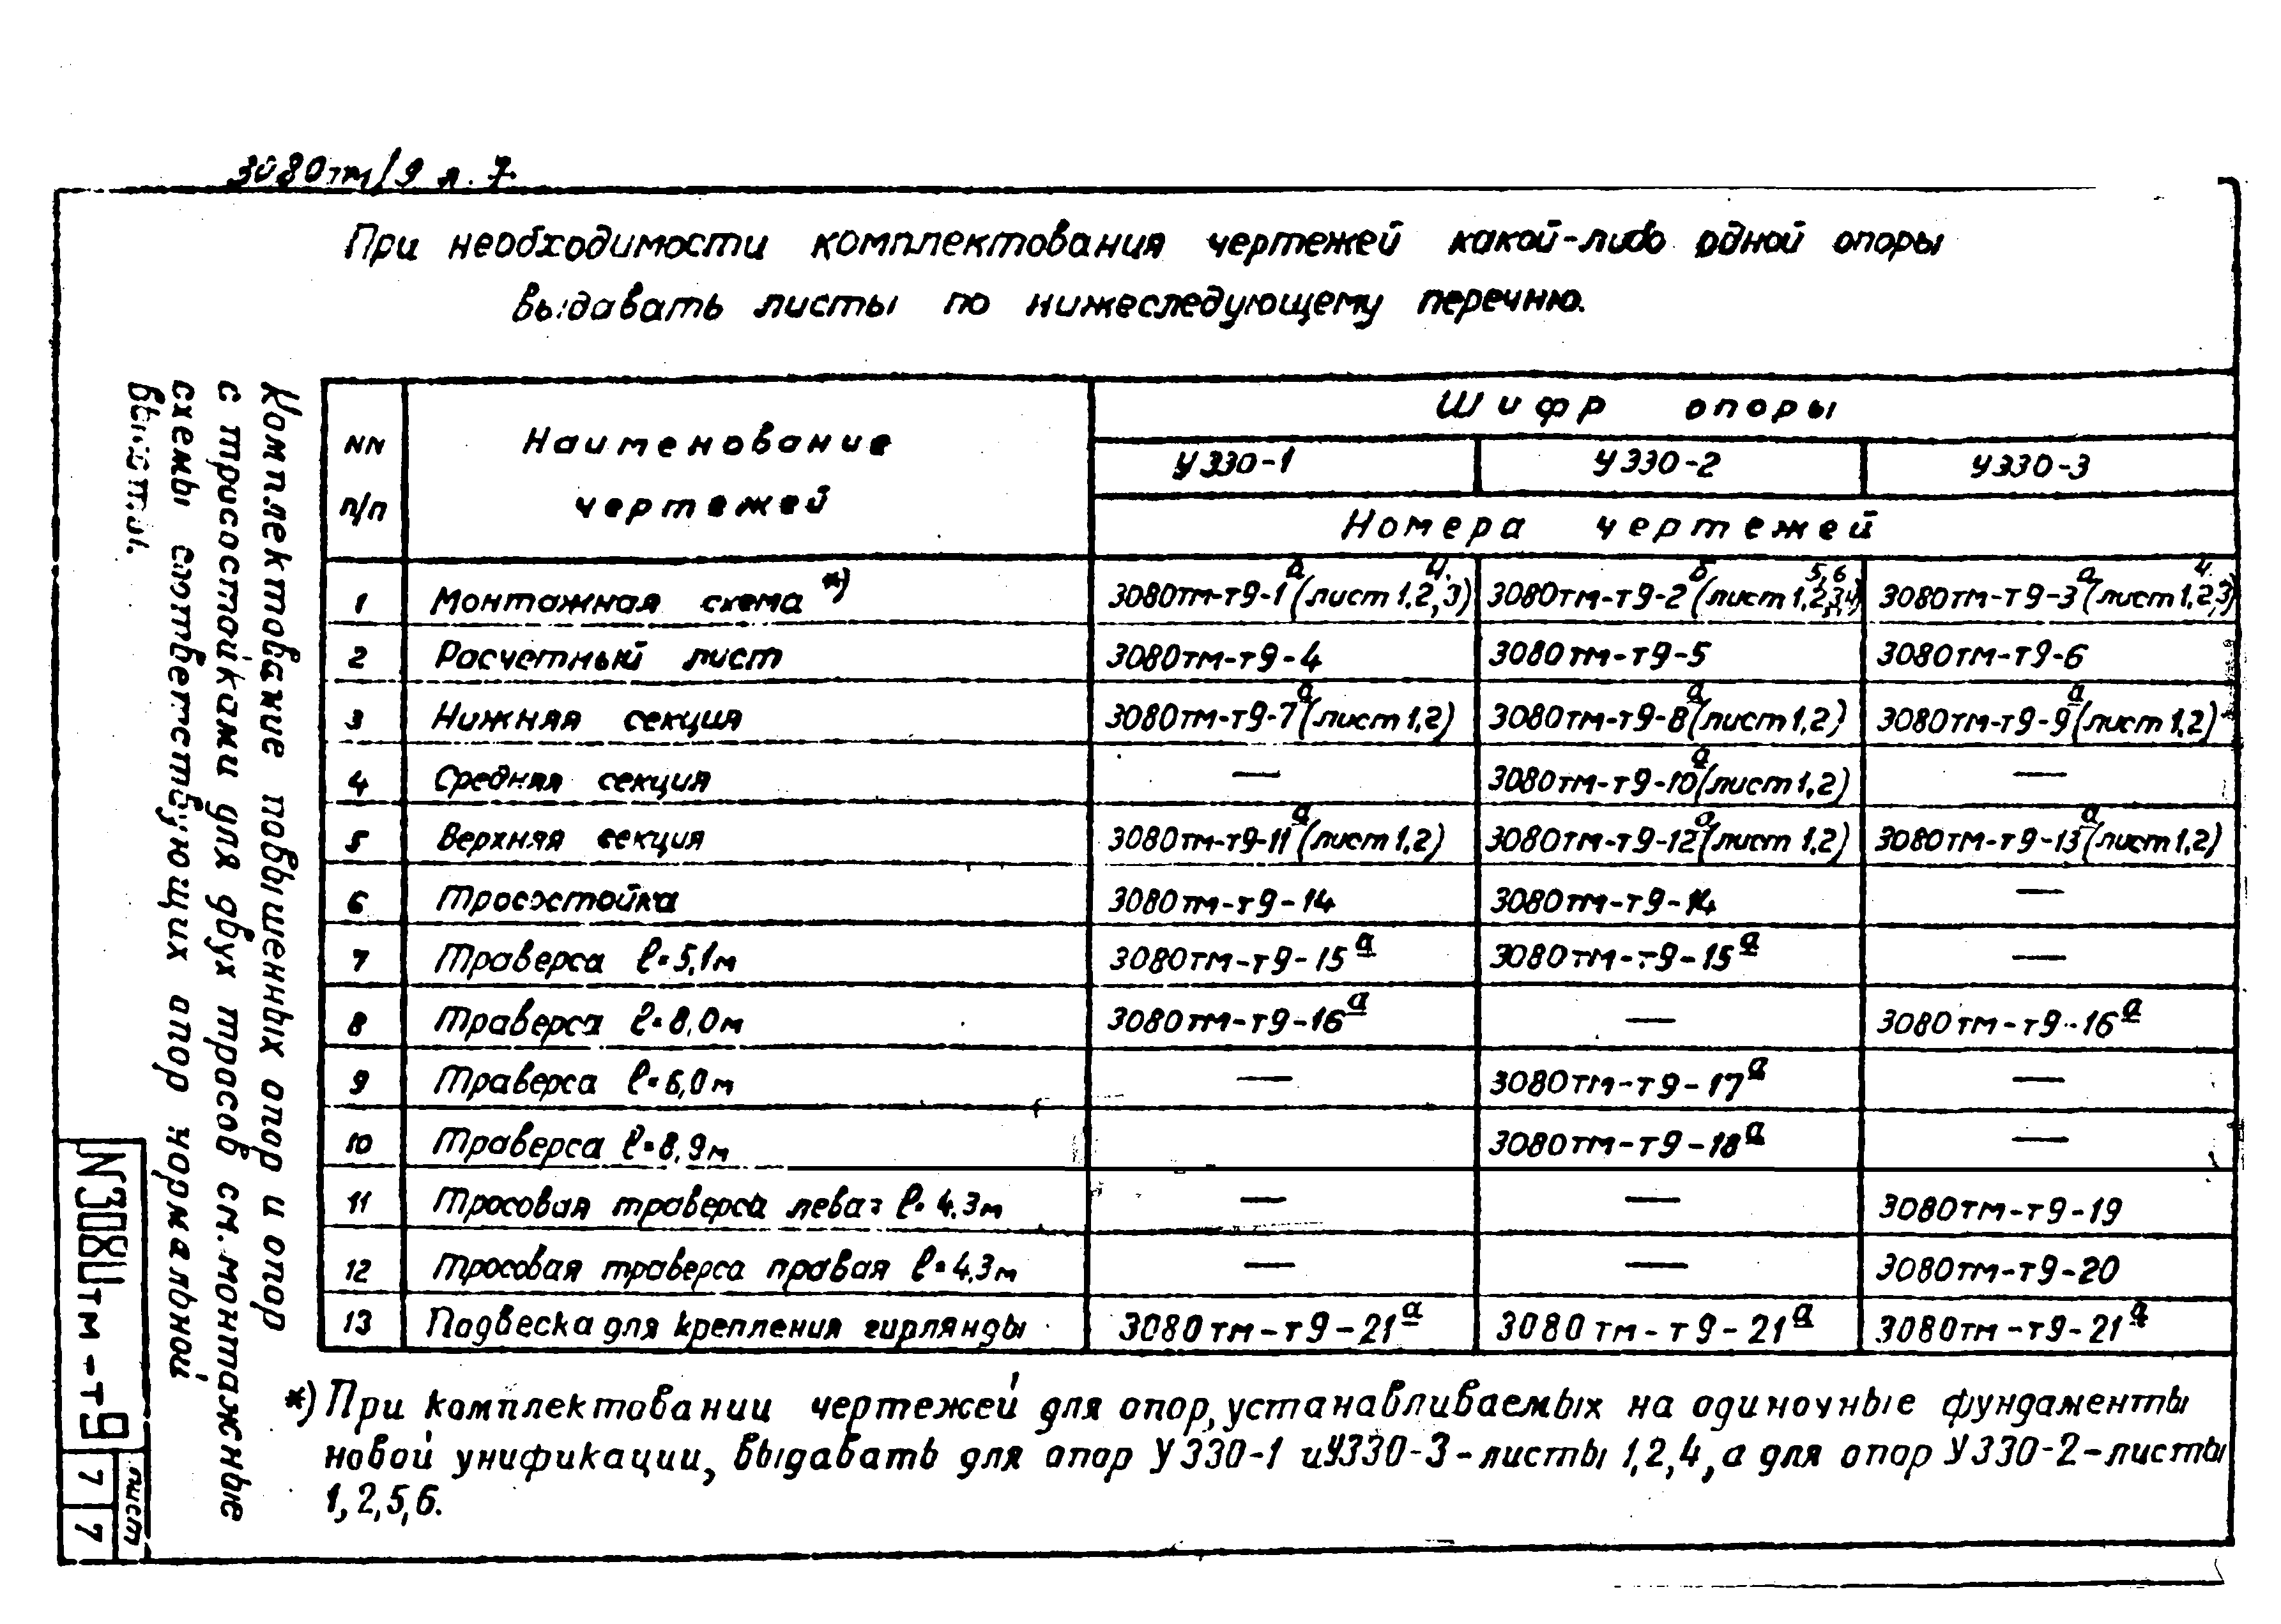 3080тм/9 л. 7
При необходимости комплектования чертежей какой-либо одной опоры
выдавать листы по нижеследующему перечню.
NN п/п Наименование чертежей Шифр опоры
У330-1 У330-2 У330-3
Номера чертежей
1 Монтажная схема *) 3080тм-т9-1а (лист 1,2,3) 4. 3080тм-т9-2б (лист 1,2,3,4) 5,6 3080тм-т9-3а (лист 1,2,3) 4.
2 Расчетный лист 3080тм-т9-4 3080тм-т9-5 3080тм-т9-6
3 Нижняя секция 3080тм-т9-7а (лист 1,2) 3080тм-т9-8а (лист 1,2) 3080тм-т9-9а (лист 1,2)
4 Средняя секция — 3080тм-т9-10а (лист 1,2) —
5 Верхняя секция 3080тм-т9-11а (лист 1,2) 3080тм-т9-12а (лист 1,2) 3080тм-т9-13а (лист 1,2)
6 Тросостойка 3080тм-т9-14 3080тм-т9-14 —
7 Траверса ℓ=5,1м 3080тм-т9-15а 3080тм-т9-15а —
8 Траверса ℓ=8,0м 3080тм-т9-16а — 3080тм-т9-16а
9 Траверса ℓ=6,0м — 3080тм-т9-17а —
10 Траверса ℓ=8,9м 3080тм-т9-18а —
11 Тросовая траверса левая ℓ=4,3м — — 3080тм-т9-19
12 Тросовая траверса правая ℓ=4,3м — — 3080тм-т9-20
13 Подвеска для крепления гирлянды 3080тм-т9-21а 3080тм-т9-21а 3080тм-т9-21а
*) При комплектовании чертежей для опор, устанавливаемых на одиночные фундаменты
новой унификации, выдавать для опор У330-1 и У330-3 - листы 1,2,4, а для опор У330-2 - листы
1,2,5,6.
Комплектование повышенных опор и опор
с тросостойками для двух тросов см. монтажные
схемы соответствующих опор нормальной
высоты.
N3080тм-т9
лист
7 7